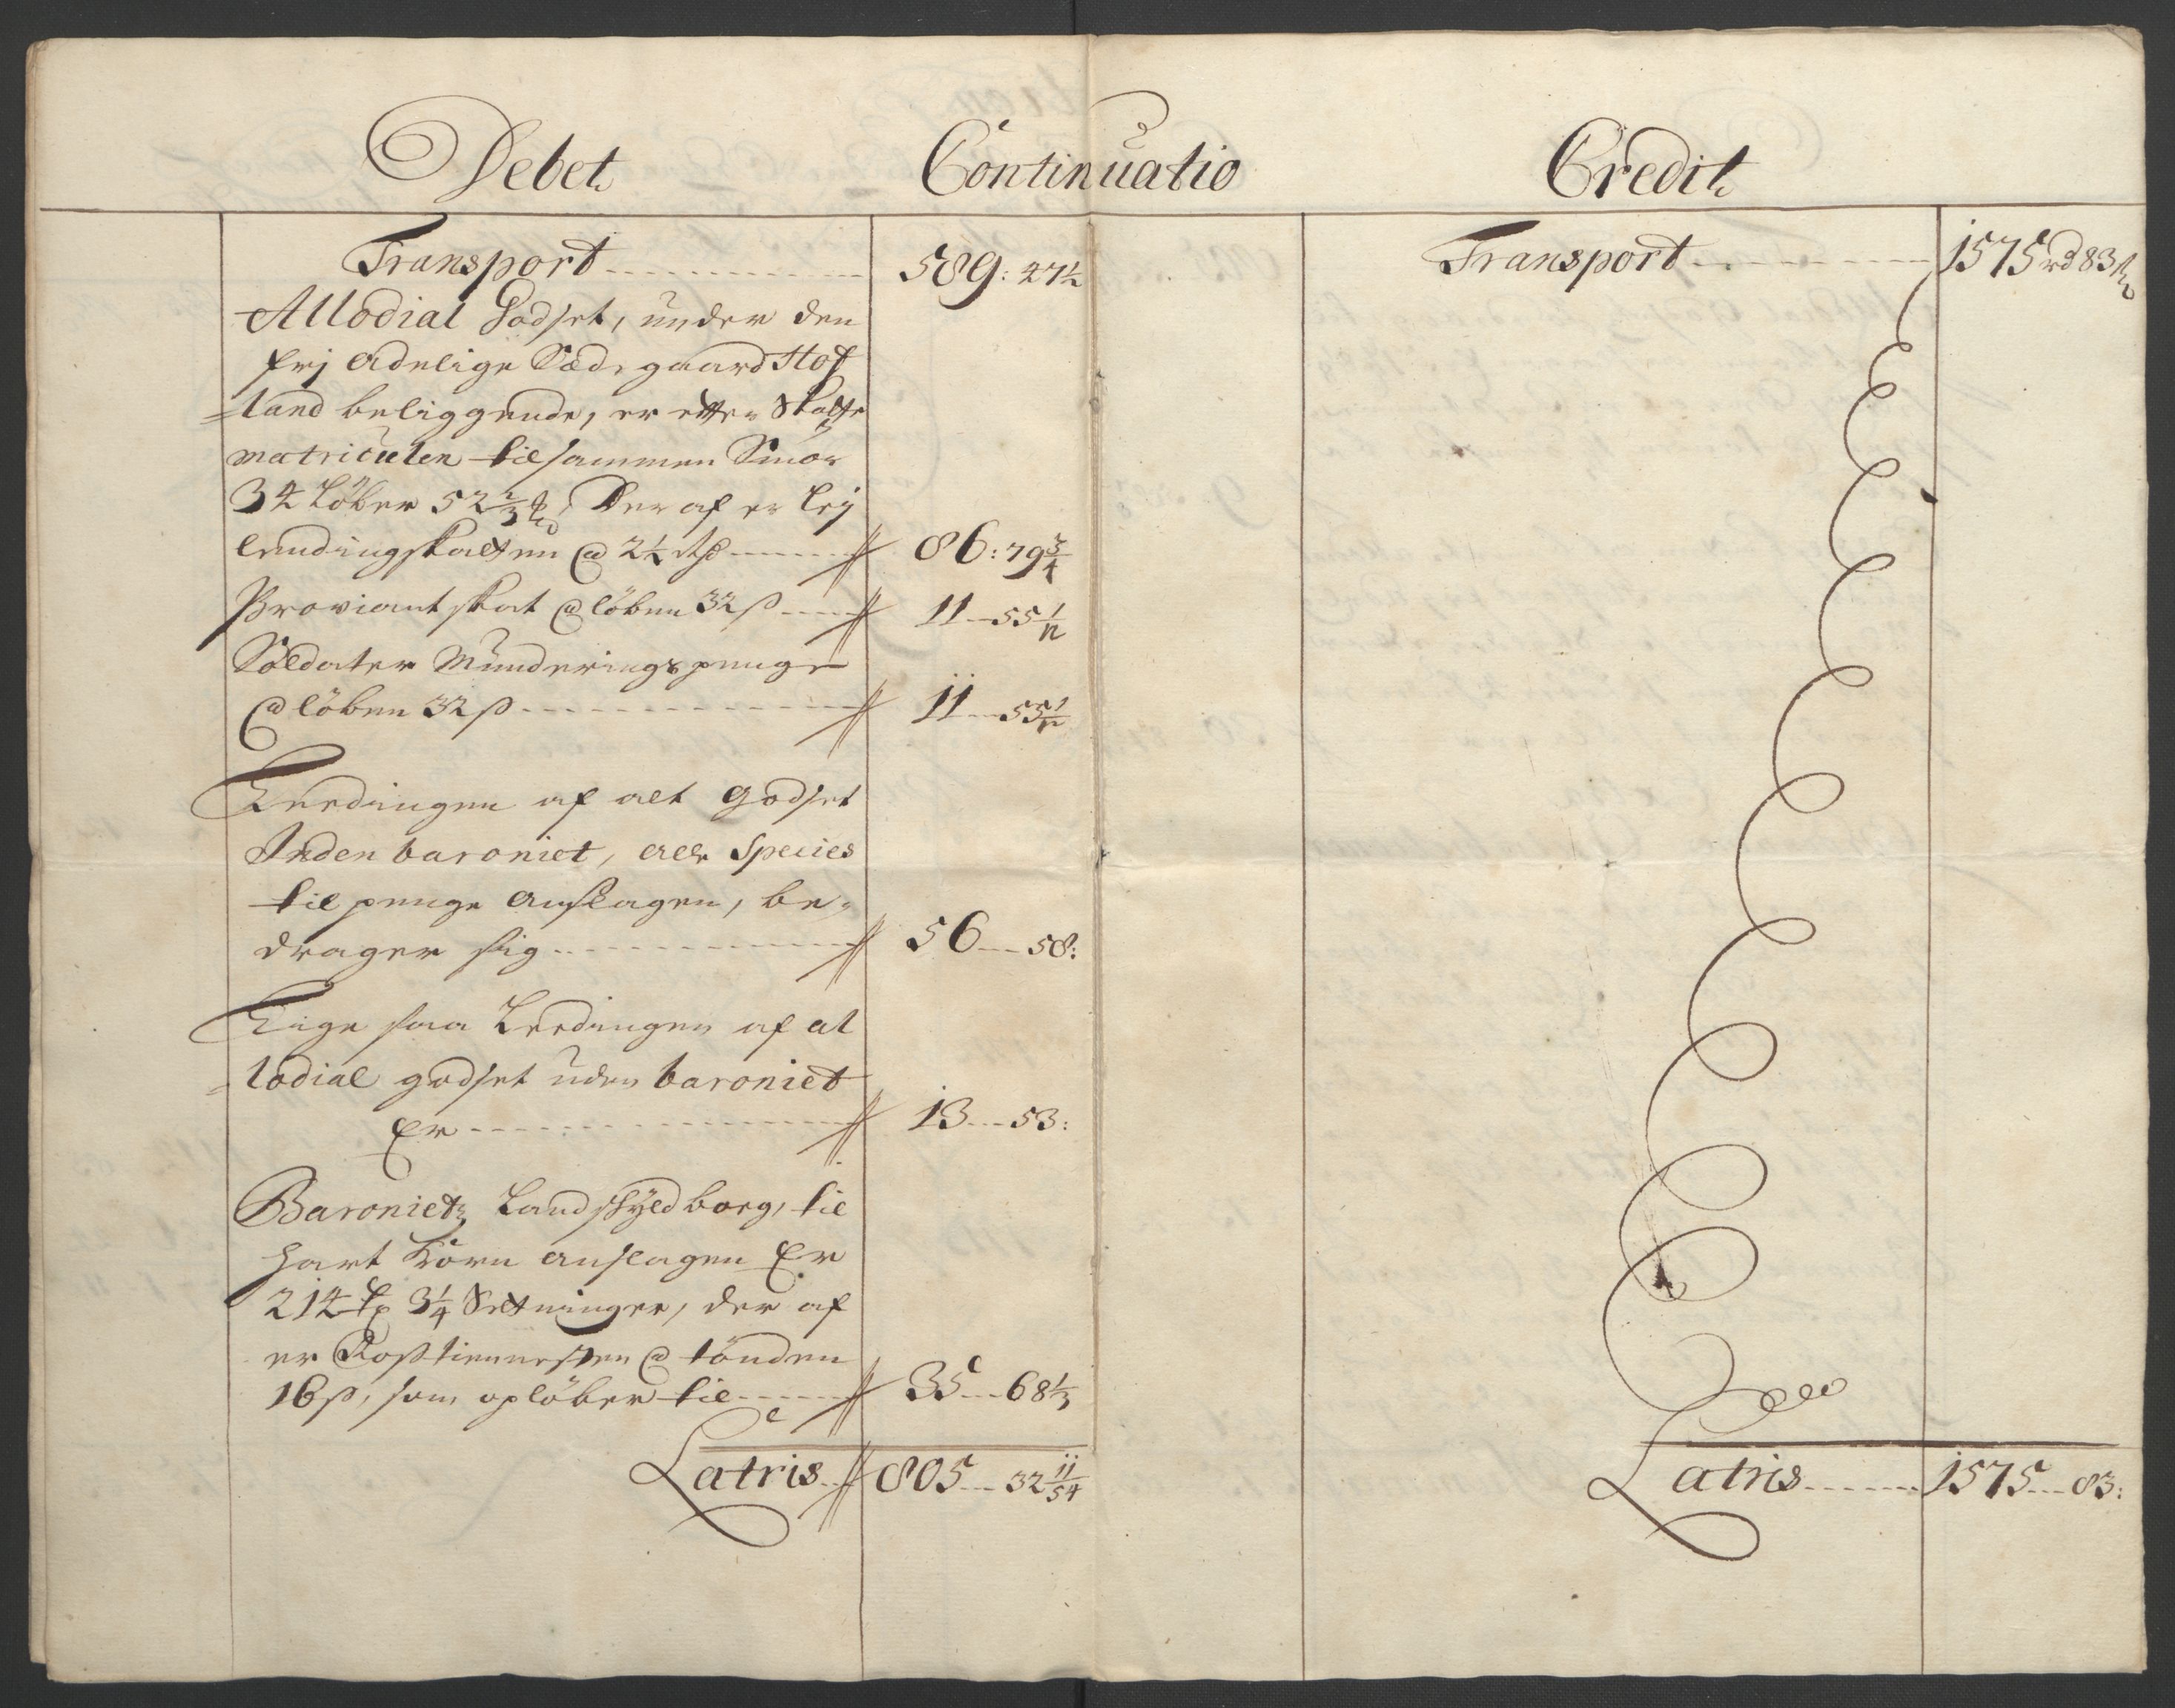 Debet
Continuatio
Credit
Transport 589: 27½
Allodial Godset, under den
frj Adelige Sædegaard Hof
=land beliggende, er effter Skatte
matriculen tilsammen Smör
34 Löber 52 2/3 ℔, Der af er lej
lendingskatten @ 2½ rd 86: 79¾
Proviantskat @ löben 32 ß 11 - 55 1/12
Soldater Munderings penge
@ löben 32 ß 11 - 55 1/12
Leedingen af alt godset
Inden baroniet, alle Species
til penge anslagen, be=
drager sig 56 - 58:
Lige saa Leedingen af al
=lodial godset uden baroniet
Er 13 - 53:
Baroniets Landskyld borg, til
Hart Korn anslagen Er
214 Tr 3¼ Settninger, der af
er Rostiennesten @ tönden
16 ß, som oplöber til 35 - 68⅓
Latris 805 - 32 11/54
Transport 1575 rd 83 ß
Latris 1575 - 83: